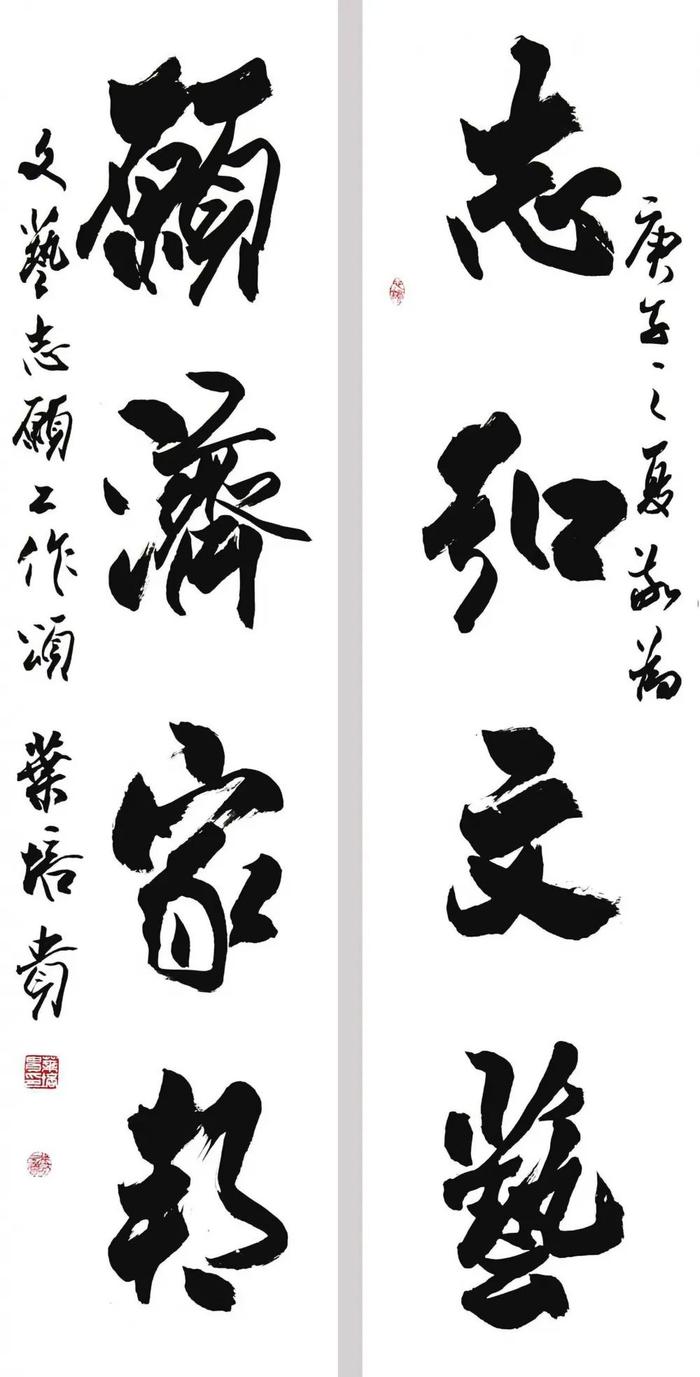 庚子之夏敬為
志弘文藝
願濟家邦
文藝志願工作頌 葉培貴